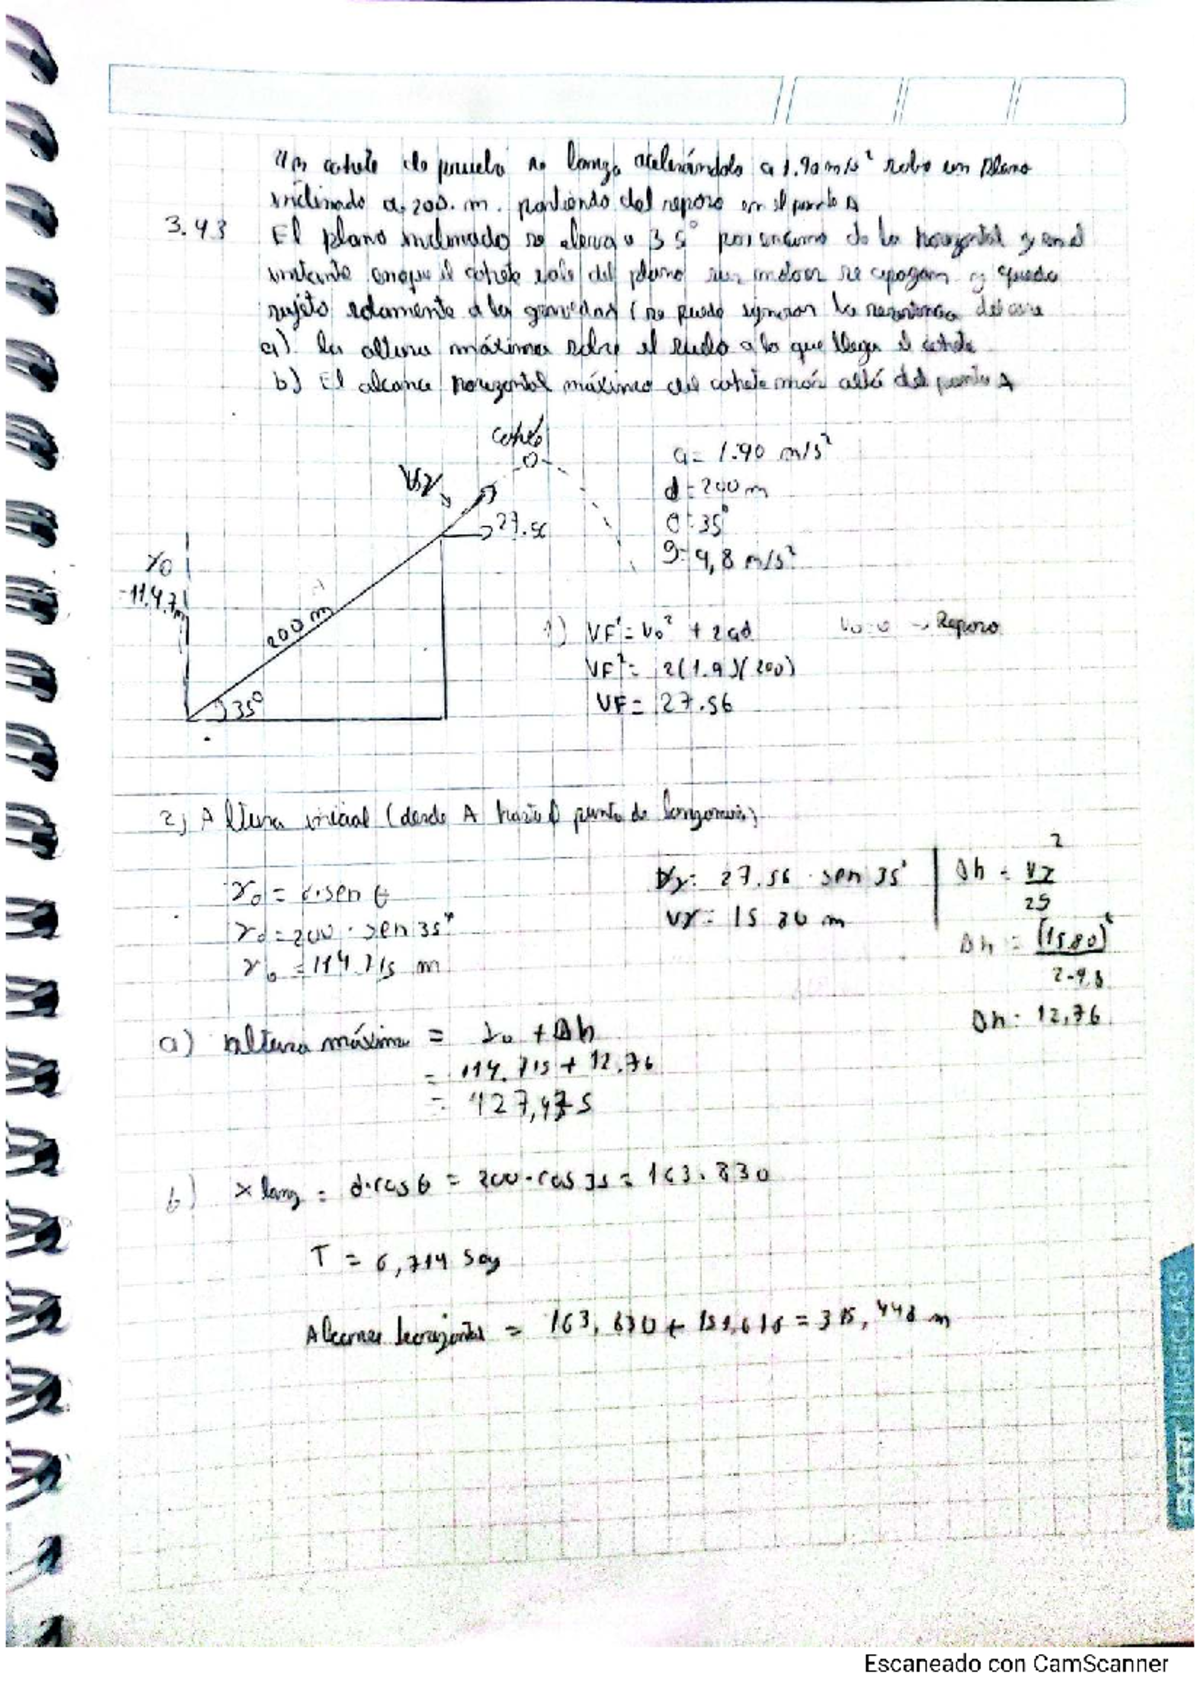 Un cohete de prueba se lanza acelerándolo a 1.90 m/s² sobre un plano
inclinado a 200. m. partiendo del reposo en el punto A
3.43 El plano inclinado se eleva a 35° por encima de la horizontal y en el
instante en que el cohete sale del plano sus motores se apagan y queda
sujeto solamente a la gravedad (se puede ignorar la resistencia del aire
a) La altura máxima sobre el suelo a la que llega el cohete
b) El alcance horizontal máximo del cohete más allá del punto A
cohete
a = 1.90 m/s²
d = 200 m
θ = 35°
g = 9,8 m/s²
27.56
Y0
200 m
35°
1) VF² = V0² + 2ad V0=0 → Reposo
VF² = 2(1.9)(200)
VF = 27.56
2) Altura inicial (desde A hasta punto de
Vy: 27.56 · sen 35°
Vy: 15.80 m
Y0 = d·sen θ
Y0 = 200 · sen 35°
Y0 = 114.715 m
Δh =
Δh = (15.80)²
2-9.8
Δh = 12,76
a) altura máxima = Y0 + Δh
= 114.715 + 12.76
= 127,475
b) X lanz = d·cos θ = 200 · cos 35 = 163.830
T = 6,714 seg
Alcance horizontal = 163,830 + 151,618 = 315,448 m
Escaneado con CamScanner